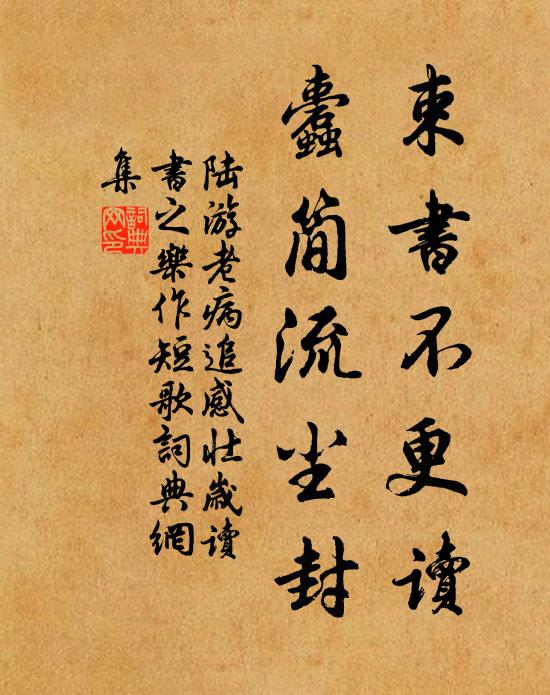 束書不更讀
蠹简流尘封
陸游老病追感壯歲讀
書之樂作短歌詞典網
集
詞典
网印